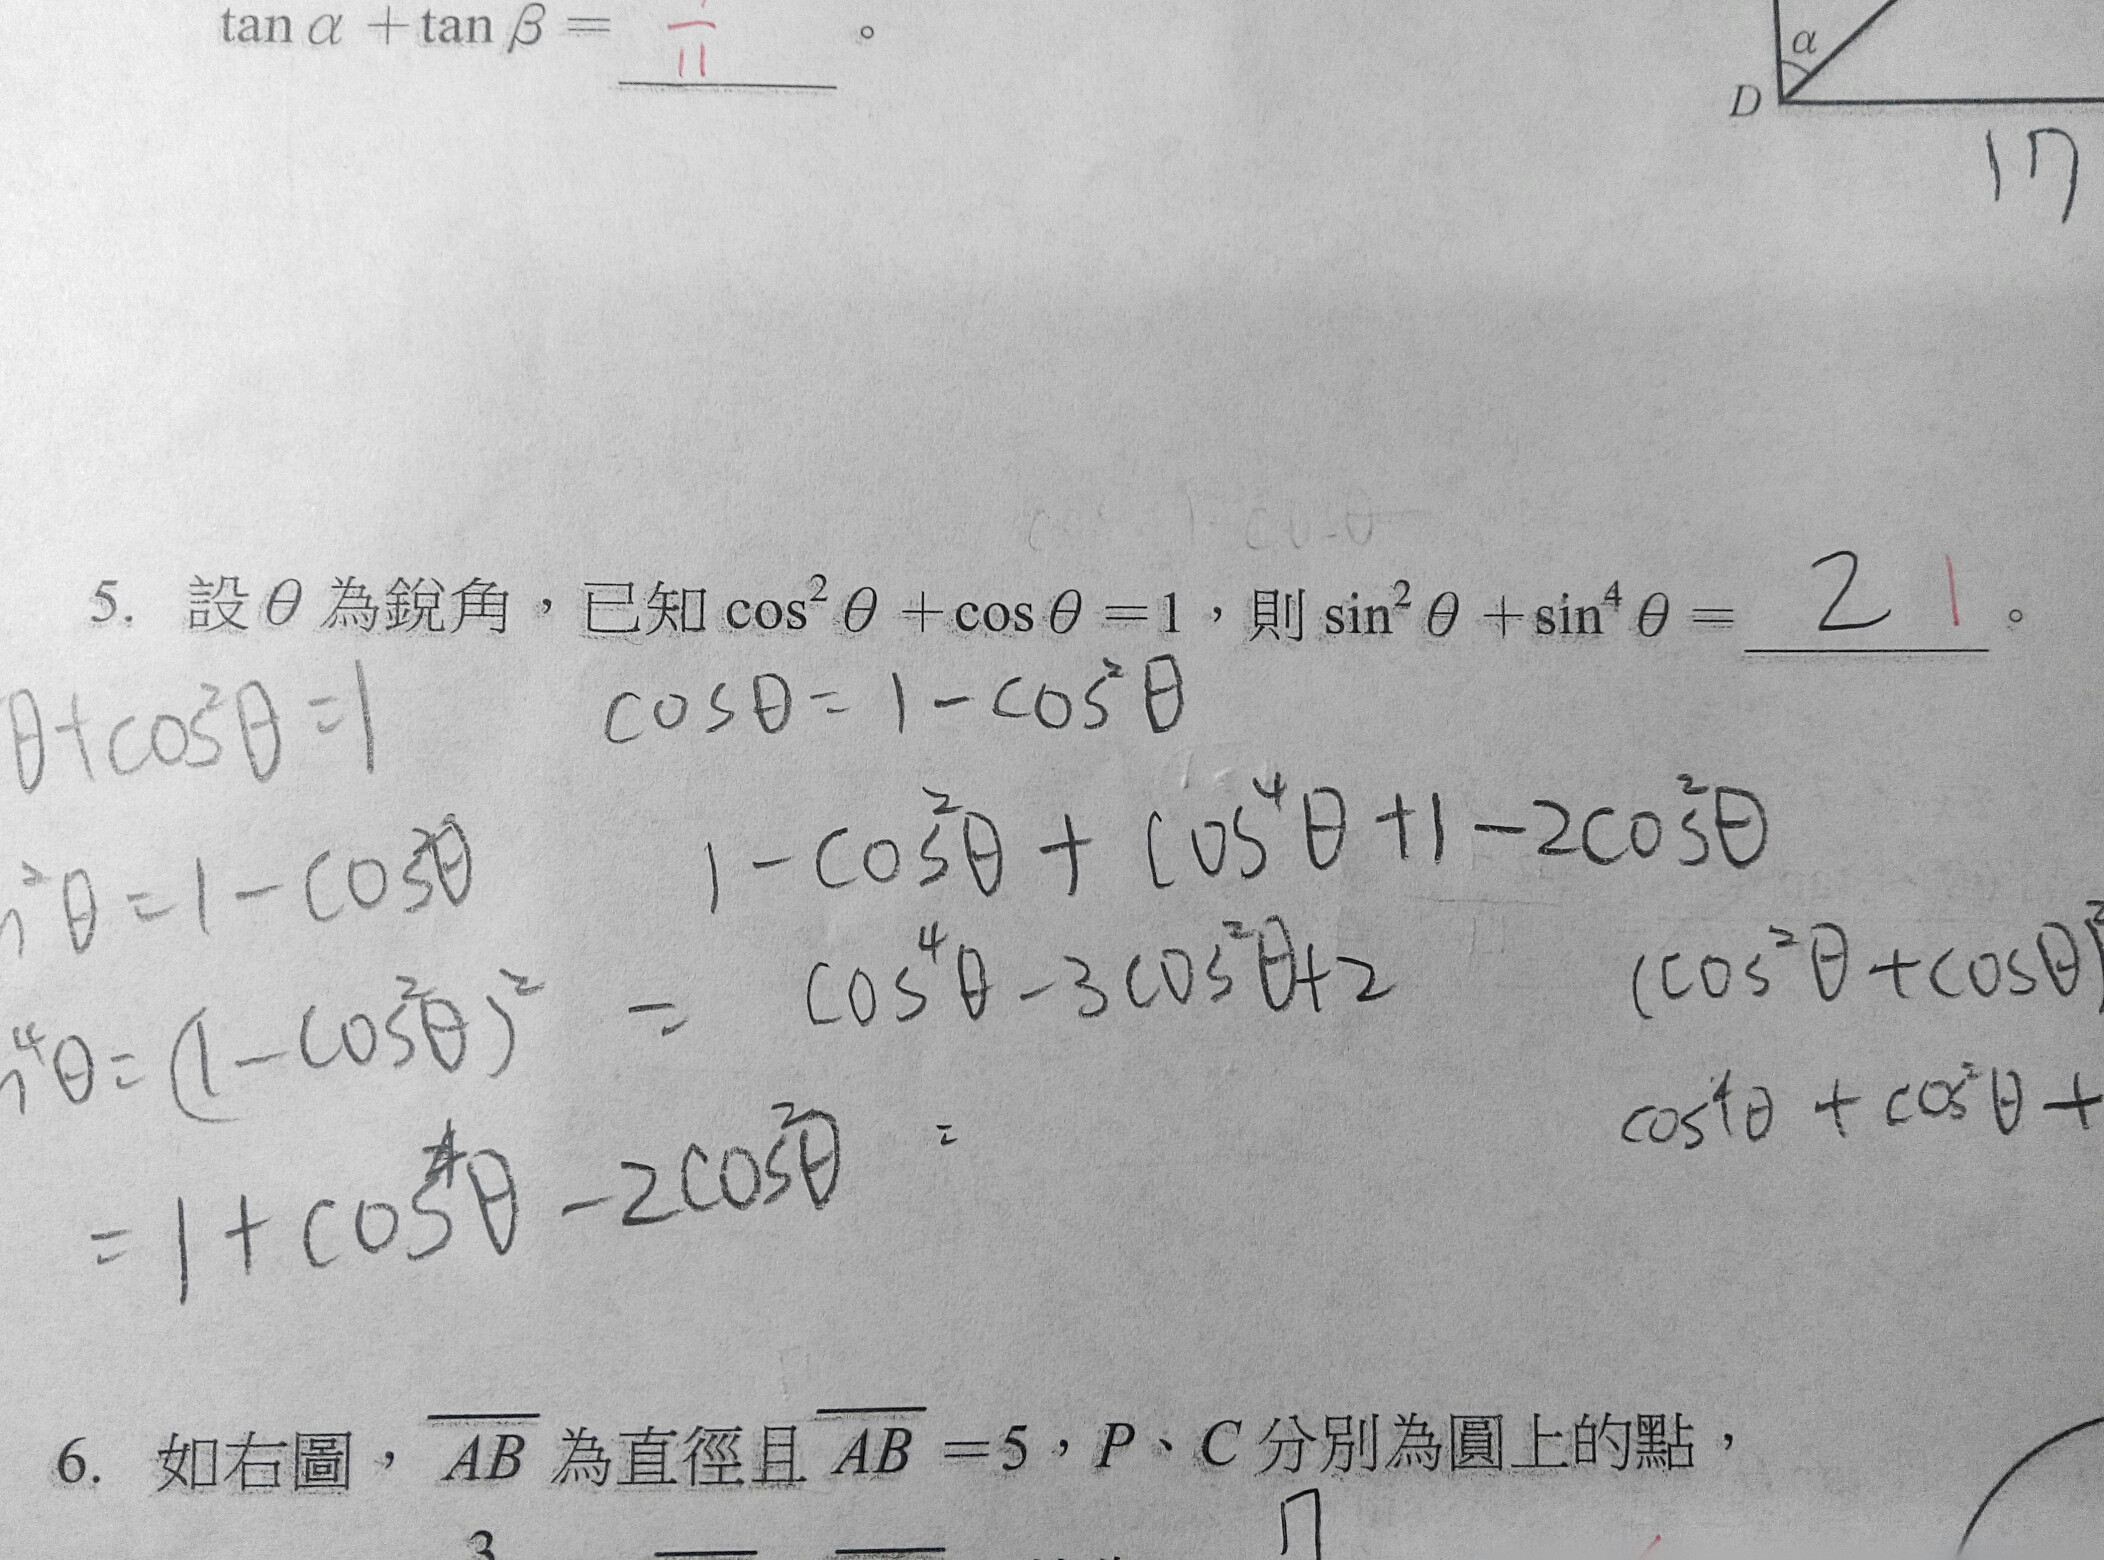 tan α + tan β = 11 。
α
D
17
5. 設 θ 為銳角，已知 cos² θ + cos θ = 1，則 sin² θ + sin⁴ θ = 2 1 。
θ + cos²θ = 1
cosθ = 1 - cos²θ
²θ = 1 - cos²θ
1 - cos²θ + cos⁴θ + 1 - 2cos²θ
⁴θ = (1 - cos²θ)²
= cos⁴θ - 3cos²θ + 2
(cos²θ + cosθ)²
= 1 + cos⁴θ - 2cos²θ
=
cos⁴θ + cos²θ +
6. 如右圖，AB 為直徑且 AB = 5，P、C 分別為圓上的點，
3